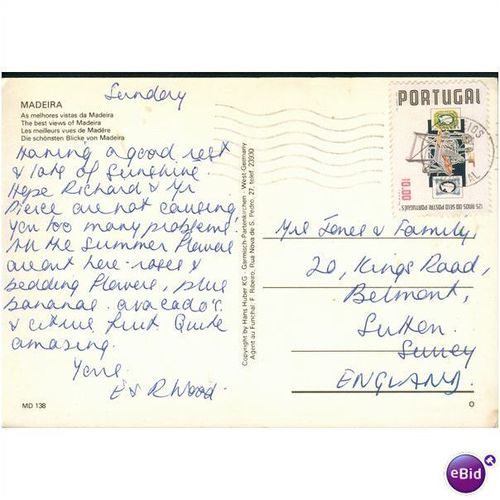 Sunday
MADEIRA
As melhores vistas da Madeira
The best views of Madeira
Les meilleurs vues de Madère
Die schönsten Blicke von Madeira
Having a good rest
& lots of Sunshine
Hope Richard & Mr
Pierce are not causing
you too many problems!
All the Summer flowers
are out here - roses &
bedding flowers, plus
bananas. avocado's.
& citrus fruit Quite
amazing.
Yours
E & R Wood.
MD 138
Copyright by Hans Huber KG · Garmisch-Partenkirchen · West-Germany
Agent au Funchal: F. Ribeiro, Rua Nova de S. Pedro, 27, telef. 22930
PORTUGAL
125 ANOS DO SELO POSTAL PORTUGUÊS
10.00
Mrs Jones & Family,
20, Kings Road,
Belmont,
Sutton.
Surrey
ENGLAND.
O
eBid